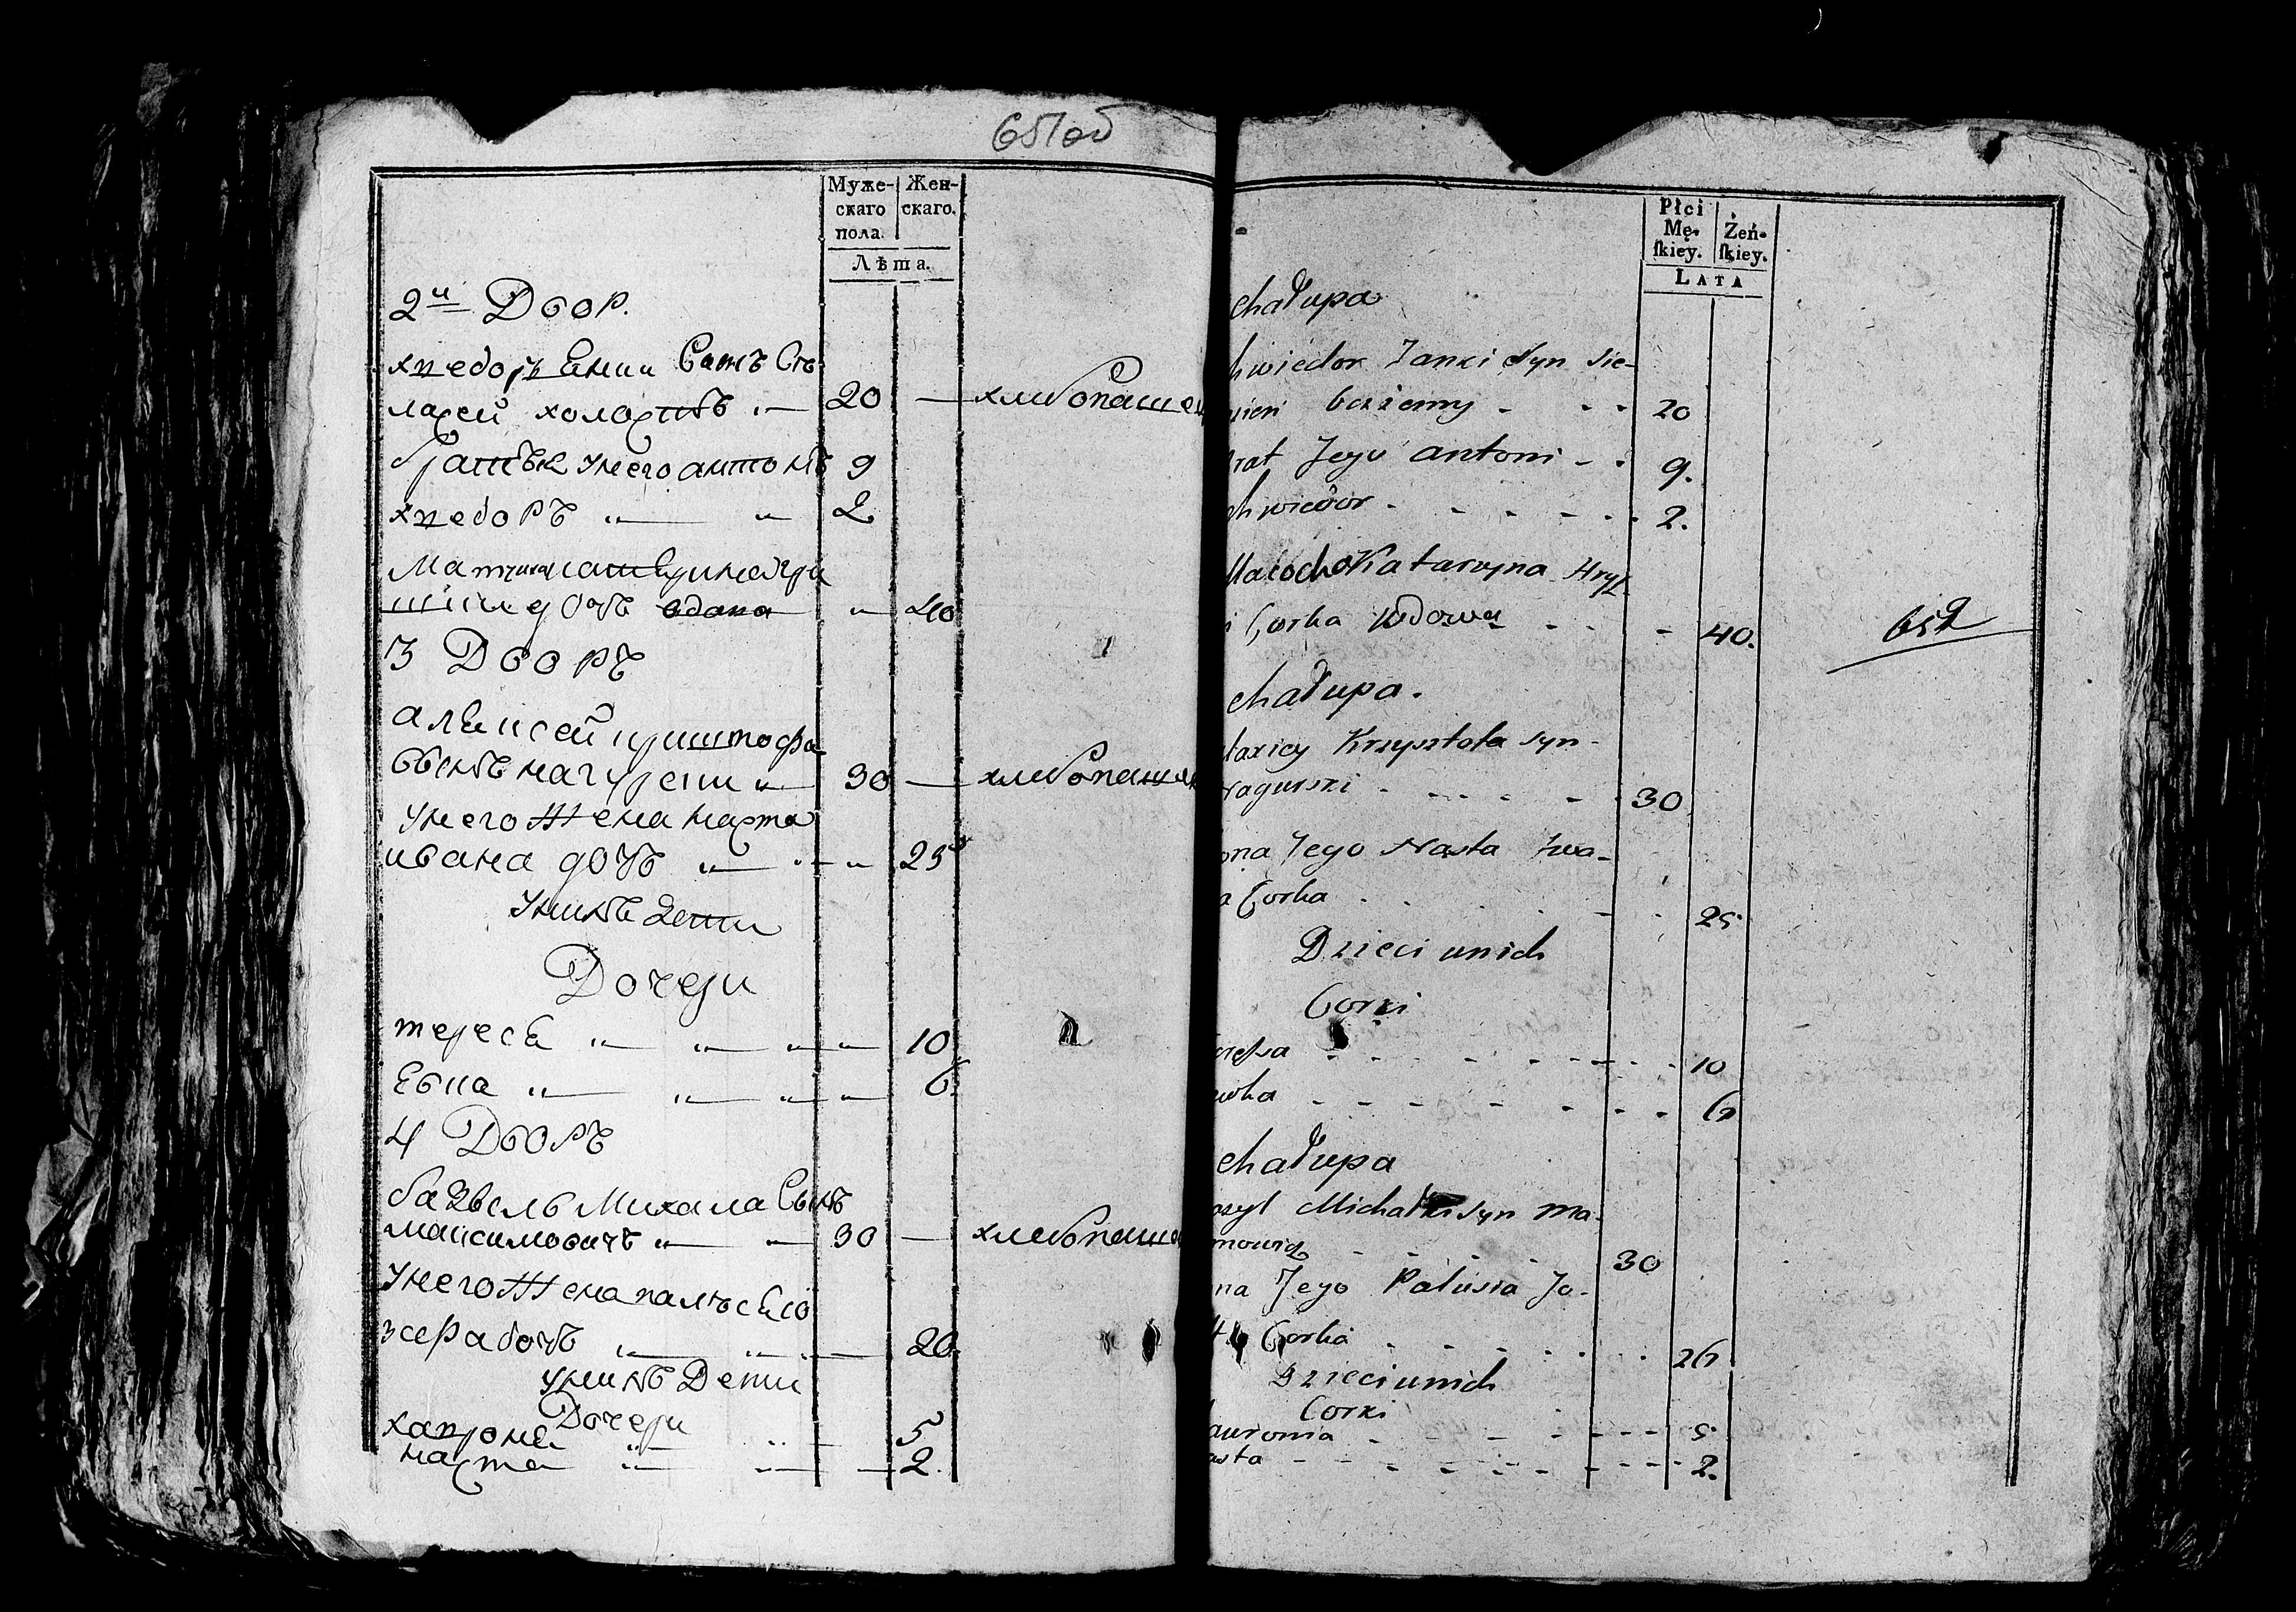 651 об
Муже-
скаго
пола.
Жен-
скаго.
Лѣта.
2й Двор.
хведоръ Янки Сынъ Сѣ-
лазей холостъ 20 — хлебопашец
братья унего антонъ 9
хведоръ 2
дочь вдова 40
3 Дворъ
алексей криштофа
сынъ нагурски 30 — хлебопашец
унего жена наста
ивана дочь 25
унихъ дети
Дочери
тереса 10
Евка 6.
4 Дворъ
Михала Сынъ
максимовичъ 30 — хлебопашец
унего жена палюся
дочь 26.
унихъ Дети
Дочери
хаврона 5
наста 2.
Płci
Mę-
ſkiey.
Żeń-
ſkiey.
LATA
chałupa
hwiedor Janki Syn Sie-
bezżenny 20
rat Jego antoni 9.
hwiedor 2.
Macocha Katarzyna Hry-
Corka Wdowa 40.
652
chałupa.
lexiey Krzysztofa syn
nagurski 30
ona Jego Nasta Iwa-
a Corka 25.
Dzieci unich
Corki
eressa 10
ewka 6
chałupa
Michałki syn Ma-
mowicz 30
na Jego Palusia Jo-
Corka 26
Dzieci unich
Corki
auronia 5.
asta 2.